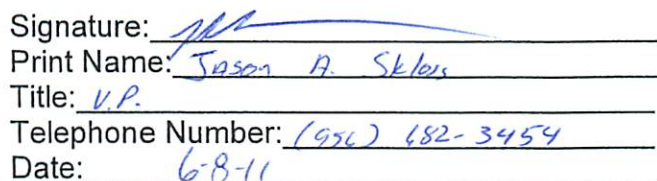 Signature:
Print Name: Jason A. Skloss
Title: V.P.
Telephone Number: (956) 682-3454
Date: 6-8-11